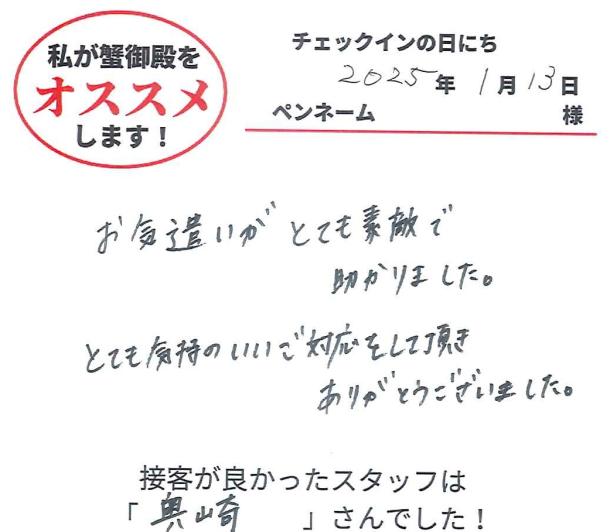 私が蟹御殿を
オススメ
します！
チェックインの日にち
2025年 1月13日
ペンネーム 様
お気遣いが とても素敵で
助かりました。
とても気持のいいご対応をして頂き
ありがとうございました。
接客が良かったスタッフは
「奥崎 」さんでした！